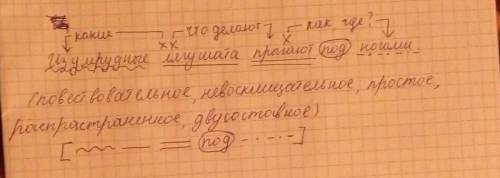 какие что делают как где?
х х х
Изумрудные лягушата прыгают под ногами.
(повествовательное, невосклицательное, простое,
распространенное, двусоставное)
[ под ]